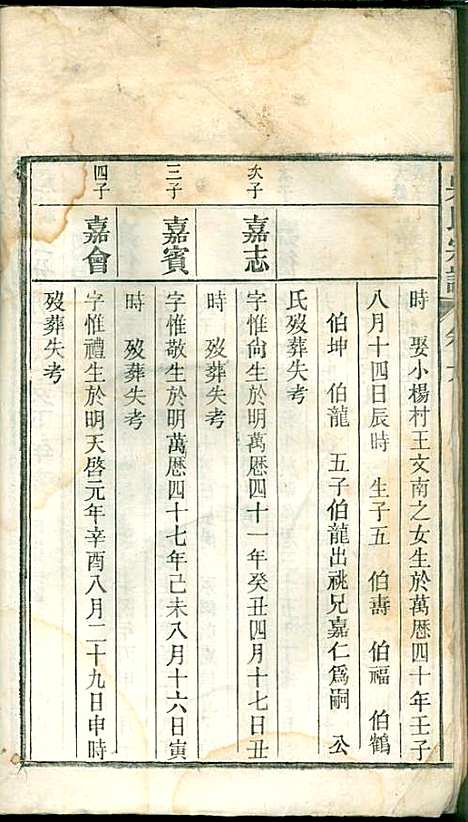 吳氏宗譜
時　娶小楊村王文南之女生於萬厯四十年壬子
八月十四日辰時　生子五　伯壽　伯福　伯鶴
伯坤　伯龍　五子伯龍出祧兄嘉仁爲嗣　公
氏歿葬失考
次子
嘉志
字惟尙生於明萬厯四十一年癸丑四月十七日丑
時　歿葬失考
三子
嘉賓
字惟敬生於明萬厯四十七年己未八月十六日寅
時　歿葬失考
四子
嘉會
字惟禮生於明天啓元年辛酉八月二十九日申時
歿葬失考